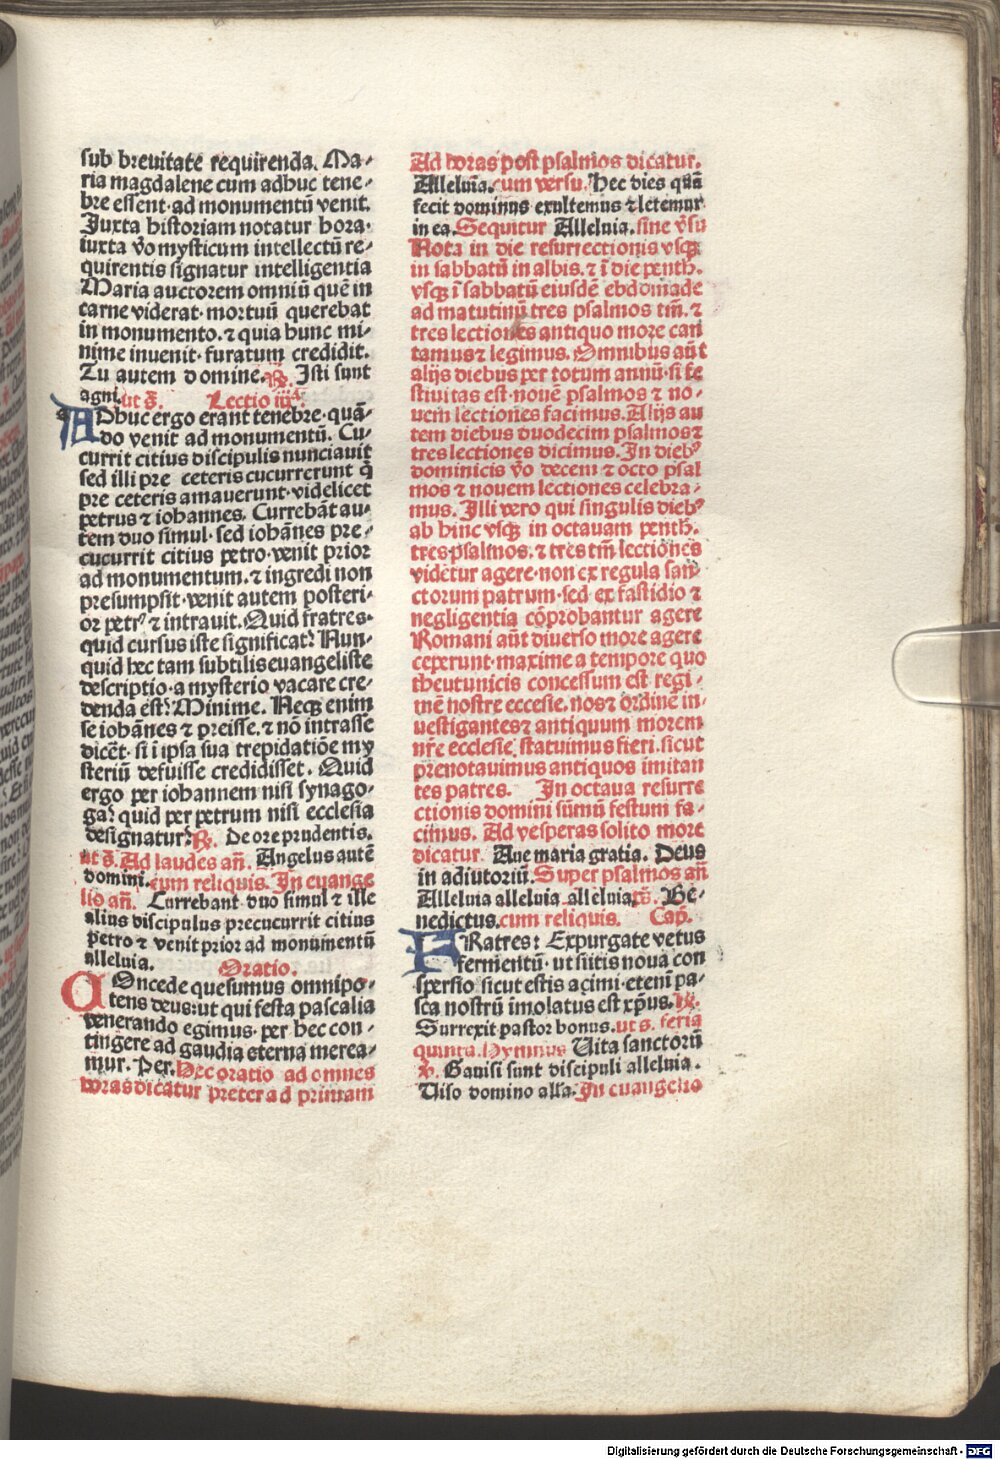 sub breuitate requirenda. Ma⸗
ria magdalene cum adhuc tene⸗
bre essent·ad monumentū venit.
Juxta historiam notatur hora·
iuxta v̄o mysticum intellectū re⸗
quirentis signatur intelligentia
Maria auctorem omniū quē in
carne viderat·mortuū querebat
in monumento.⁊ quia hunc mi⸗
nime inuenit·furatum credidit.
Tu autem domine.℟. Isti sunt
agni.ut s̄. Lectio iijᵃ.
ADhuc ergo erant tenebre·quā⸗
do venit ad monumentū. Cu⸗
currit citius discipulis nunciauit
sed illi pre ceteris cucurrerunt q̄
pre ceteris amauerunt·videlicet
petrus ⁊ iohannes. Currebāt au⸗
tem duo simul·sed iohānes pre⸗
cucurrit citius petro·venit prior
ad monumentum.⁊ ingredi non
presumpsit·venit autem posteri⸗
or petrꝰ ⁊ intrauit. Quid fratres·
quid cursus iste significat? Nun⸗
quid hec tam subtilis euangeliste
descriptio·a mysterio vacare cre⸗
denda est? Minime. Neqꝫ enim
se iohānes ⁊ preisse.⁊ nō intrasse
dicēt·si ī ipsa sua trepidatiōe my
steriū defuisse credidisset. Quid
ergo per iohannem nisi synago⸗
ga? quid per petrum nisi ecclesia
designatur? ℟. De ore prudentis.
ut s̄. Ad laudes an̄. Angelus autē
domini.cum reliquis. In euange
lio an̄. Currebant duo simul ⁊ ille
alius discipulus precucurrit citius
petro ⁊ venit prior ad monumentū
alleluia. Oratio.
COncede quesumus omnipo⸗
tens deus:ut qui festa pascalia
venerando egimus·per hec con⸗
tingere ad gaudia eterna merea⸗
mur. Per. Hec oratio ad omnes
horas dicatur preter ad primam
Ad horas post psalmos dicatur.
Alleluia. cum versu. Hec dies quā
fecit dominus exultemus ⁊ letemur
in ea. Sequitur Alleluia. sine v̄su
Nota in die resurrectionis vsqꝫ
in sabbatū in albis.⁊ ī die penth̄.
vsqꝫ ī sabbatū eiusdē ebdomade
ad matutinū tres psalmos tm̄.⁊
tres lectiones antiquo more can
tamus ⁊ legimus. Omnibus aūt
alijs diebus per totum annū·si fe
stiuitas est·nouē psalmos ⁊ no⸗
uem lectiones facimus. Alijs au
tem diebus duodecim psalmos ⁊
tres lectiones dicimus. In diebꝰ
dominicis v̄o decem ⁊ octo psal
mos ⁊ nouem lectiones celebra⸗
mus. Illi vero qui singulis diebꝰ
ab hinc vsqꝫ in octauam penth̄.
tres psalmos.⁊ tres tm̄ lectiones
videtur agere·non ex regula san
ctorum patrum·sed ex fastidio ⁊
negligentia cōprobantur agere
Romani aūt diuerso more agere
ceperunt·maxime a tempore quo
theutunicis concessum est regi⸗
mē nostre eccesie.nos ⁊ ordinē in⸗
uestigantes ⁊ antiquum morem
nr̄e ecclesie statuimus fieri.sicut
prenotauimus antiquos imitan
tes patres. In octaua resurre
ctionis domini sūmū festum fa⸗
cimus. Ad vesperas solito more
dicatur. Aue maria gratia. Deus
in adiutoriū. Super psalmos an̄
Alleluia alleluia alleluia. ps̄. Be⸗
nedictus.cum reliquis. Cap̄.
FRatres: Expurgate vetus
fermentū·ut sitis noua con
spersio sicut estis azimi·eteni pa⸗
sca nostrū īmolatus est xp̄us. ℟.
Surrexit pastor bonus.ut s. feria
quinta. Hymnus Uita sanctorū
℣. Gauisi sunt discipuli alleluia.
Uiso domino alla. In euangelio
Digitalisierung gefördert durch die Deutsche Forschungsgemeinschaft - DFG